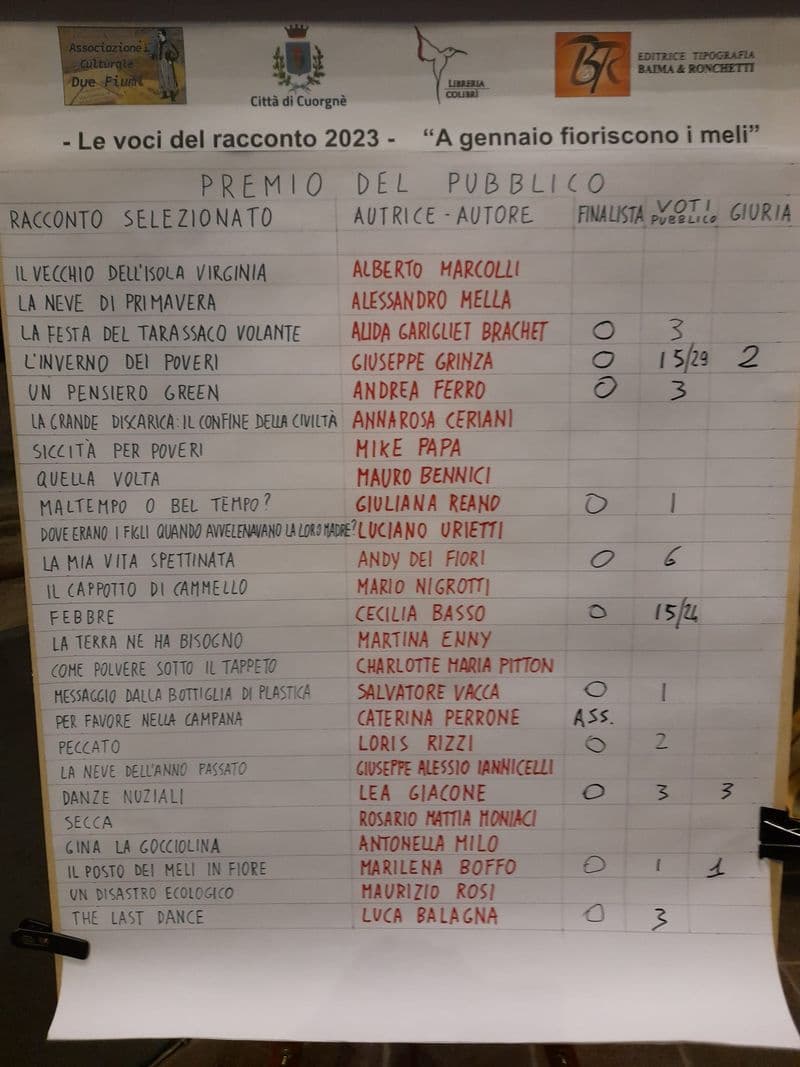 Associazione
Culturale
Due Fiumi
Città di Cuorgnè
LIBRERIA
COLIBRÌ
BTR
EDITRICE TIPOGRAFIA
BAIMA & RONCHETTI
- Le voci del racconto 2023 - “A gennaio fioriscono i meli”
PREMIO DEL PUBBLICO
RACCONTO SELEZIONATO AUTRICE - AUTORE FINALISTA VOTI PUBBLICO GIURIA
IL VECCHIO DELL'ISOLA VIRGINIA ALBERTO MARCOLLI
LA NEVE DI PRIMAVERA ALESSANDRO MELLA
LA FESTA DEL TARASSACO VOLANTE ALIDA GARIGLIET BRACHET O 3
L'INVERNO DEI POVERI GIUSEPPE GRINZA O 15/29 2
UN PENSIERO GREEN ANDREA FERRO O 3
LA GRANDE DISCARICA: IL CONFINE DELLA CIVILTÀ ANNAROSA CERIANI
SICCITÀ PER POVERI MIKE PAPA
QUELLA VOLTA MAURO BENNICI
MALTEMPO O BEL TEMPO? GIULIANA REANO O 1
DOVE ERANO I FIGLI QUANDO AVVELENAVANO LA LORO MADRE? LUCIANO URIETTI
LA MIA VITA SPETTINATA ANDY DEI FIORI O 6
IL CAPPOTTO DI CAMMELLO MARIO NIGROTTI
FEBBRE CECILIA BASSO O 15/24
LA TERRA NE HA BISOGNO MARTINA ENNY
COME POLVERE SOTTO IL TAPPETO CHARLOTTE MARIA PITTON
MESSAGGIO DALLA BOTTIGLIA DI PLASTICA SALVATORE VACCA O 1
PER FAVORE NELLA CAMPANA CATERINA PERRONE ASS.
PECCATO LORIS RIZZI O 2
LA NEVE DELL'ANNO PASSATO GIUSEPPE ALESSIO IANNICELLI
DANZE NUZIALI LEA GIACONE O 3 3
SECCA ROSARIO MATTIA MONIACI
GINA LA GOCCIOLINA ANTONELLA MILO
IL POSTO DEI MELI IN FIORE MARILENA BOFFO O 1 1
UN DISASTRO ECOLOGICO MAURIZIO ROSI
THE LAST DANCE LUCA BALAGNA O 3